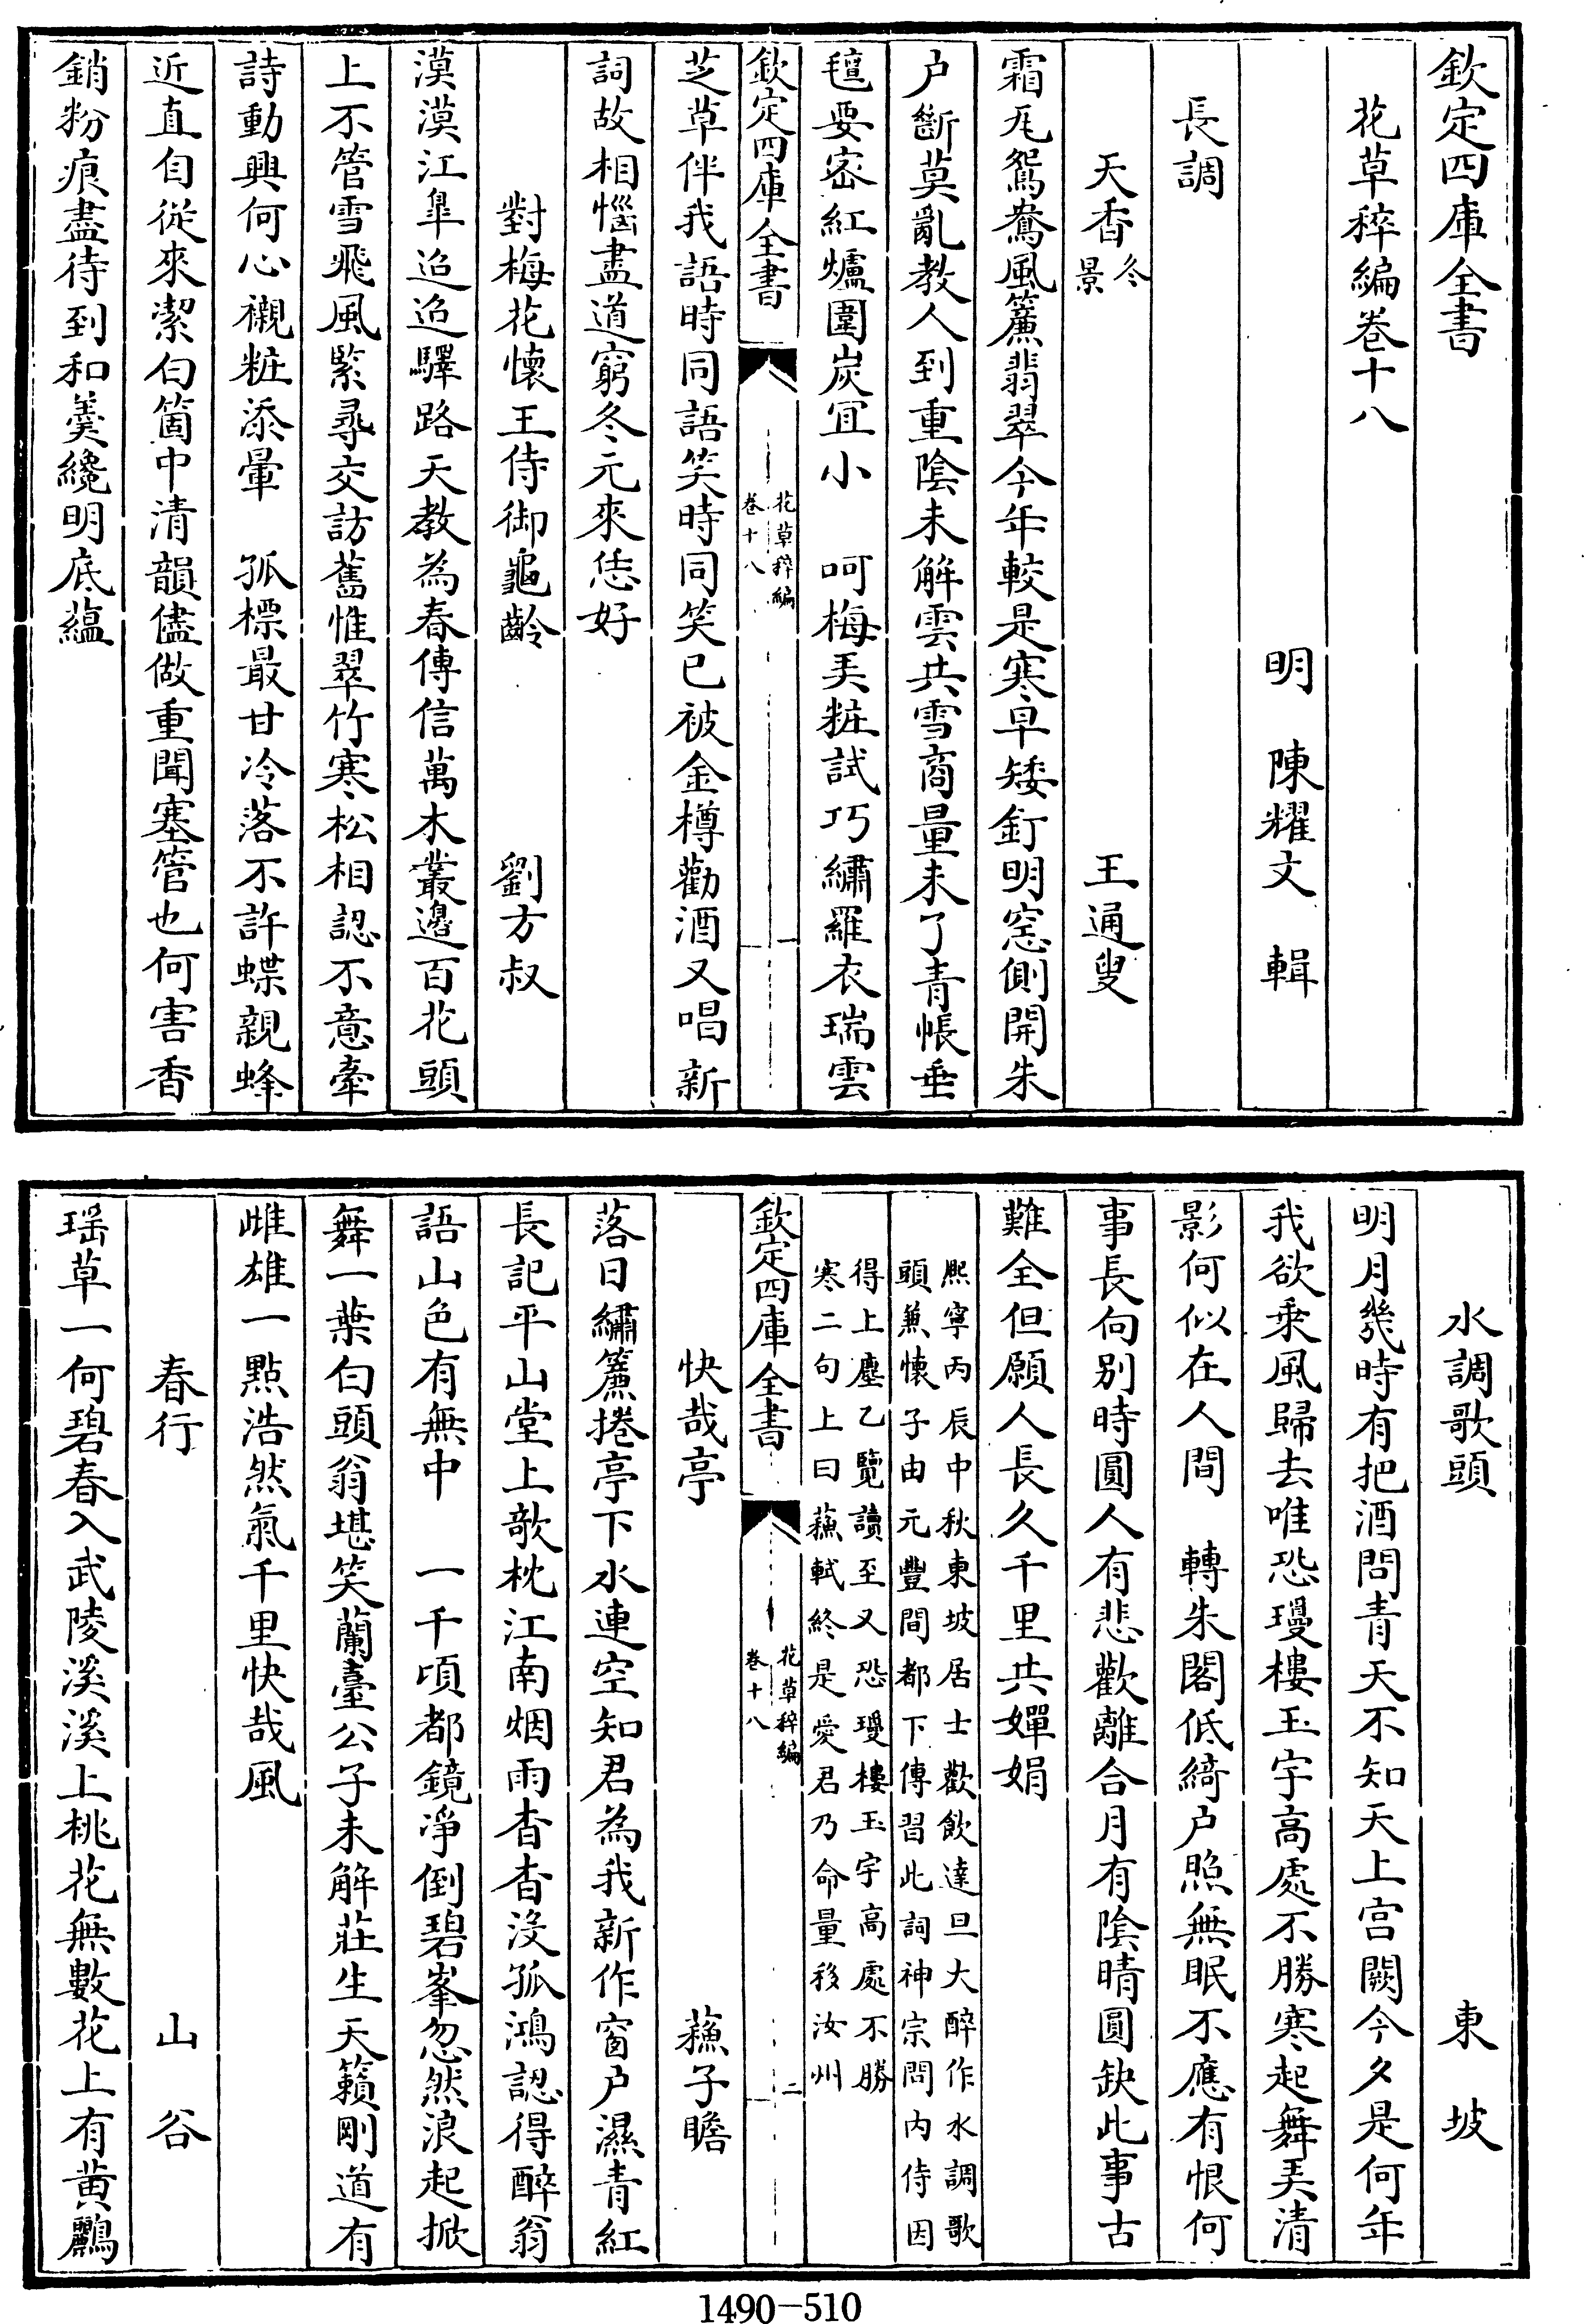 欽定四庫全書
花草稡編卷十八
明　陳耀文　輯
長調
天香冬景　王通叟
霜瓦鴛鴦風簾翡翠今年較是寒早矮釘明窓側開朱
户斷莫亂教人到重陰未解雲共雪商量未了青帳垂
氊要宻紅爐圍炭宜小　呵梅美粧試巧繡羅衣瑞雲
欽定四庫全書
花草稡編
卷十八
一
芝草伴我語時同語笑時同笑已被金樽勸酒又唱新
詞故相惱盡道窮冬元來恁好
對梅花懐王侍御龜齡　劉方叔
漠漠江臯迢迢驛路天教為春傳信萬木叢邉百花頭
上不管雪飛風緊尋交訪舊惟翠竹寒松相認不意牽
詩動興何心襯粧添暈　孤標最甘冷落不許蝶親蜂
近直自從來潔白箇中清韻儘做重聞塞管也何害香
銷粉痕盡待到和羮纔明底藴
水調歌頭　東坡
明月幾時有把酒問青天不知天上宫闕今夕是何年
我欲乘風歸去唯恐瓊樓玉宇高處不勝寒起舞美清
影何似在人間　轉朱閣低綺户照無眠不應有恨何
事長向别時圓人有悲歡離合月有陰晴圓缺此事古
難全但願人長久千里共嬋娟
熈寧丙辰中秋東坡居士歡飲達旦大醉作水調歌
頭兼懐子由元豐間都下傳習此詞神宗問内侍因
得上塵乙覽讀至又恐瓊樓玉宇髙處不勝
寒二句上曰蘓軾終是愛君乃命量移汝州
欽定四庫全書
花草稡編
卷十八
二
快哉亭　蘓子瞻
落日繡簾捲亭下水連空知君為我新作窗户濕青紅
長記平山堂上欹枕江南烟雨杳杳没孤鴻認得醉翁
語山色有無中　一千頃都鏡凈倒碧峯忽然浪起掀
舞一葉白頭翁堪笑蘭臺公子未解莊生天籟剛道有
雌雄一點浩然氣千里快哉風
春行　山谷
瑶草一何碧春入武陵溪溪上桃花無數花上有黄鸝
1490-510